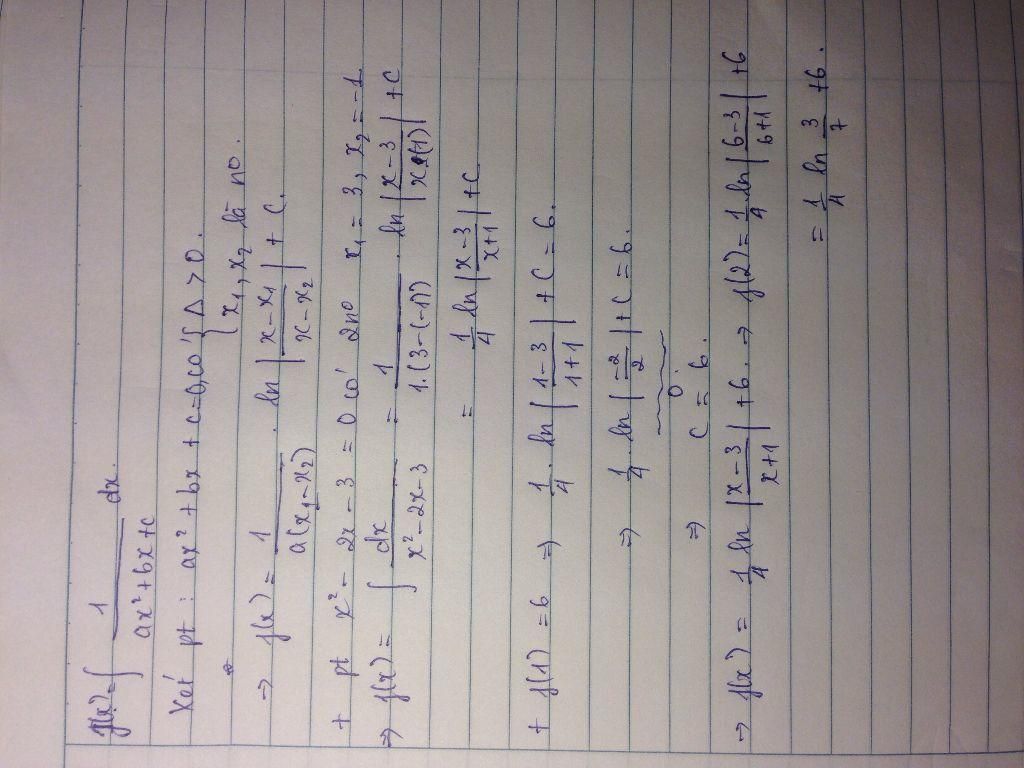 f(x) = ∫ 1/(ax² + bx + c) dx.
Xét pt : ax² + bx + c = 0, có { Δ > 0.
x₁, x₂ là no.
→ f(x) = 1/(a(x₁ - x₂)) . ln |(x - x₁)/(x - x₂)| + C.
+ pt x² - 2x - 3 = 0 có 2no x₁ = 3, x₂ = -1
⇒ f(x) = ∫ dx/(x² - 2x - 3) = 1/(1.(3 - (-1))) . ln |(x - 3)/(x - (-1))| + C
= 1/4 ln |(x - 3)/(x + 1)| + C
+ f(1) = 6 ⇒ 1/4 . ln |(1 - 3)/(1 + 1)| + C = 6.
⇒ 1/4 . ln |-2/2| + C = 6.
0
⇒ C = 6.
→ f(x) = 1/4 ln |(x - 3)/(x + 1)| + 6. → f(2) = 1/4 . ln |(6 - 3)/(6 + 1)| + 6
= 1/4 ln 3/7 + 6.